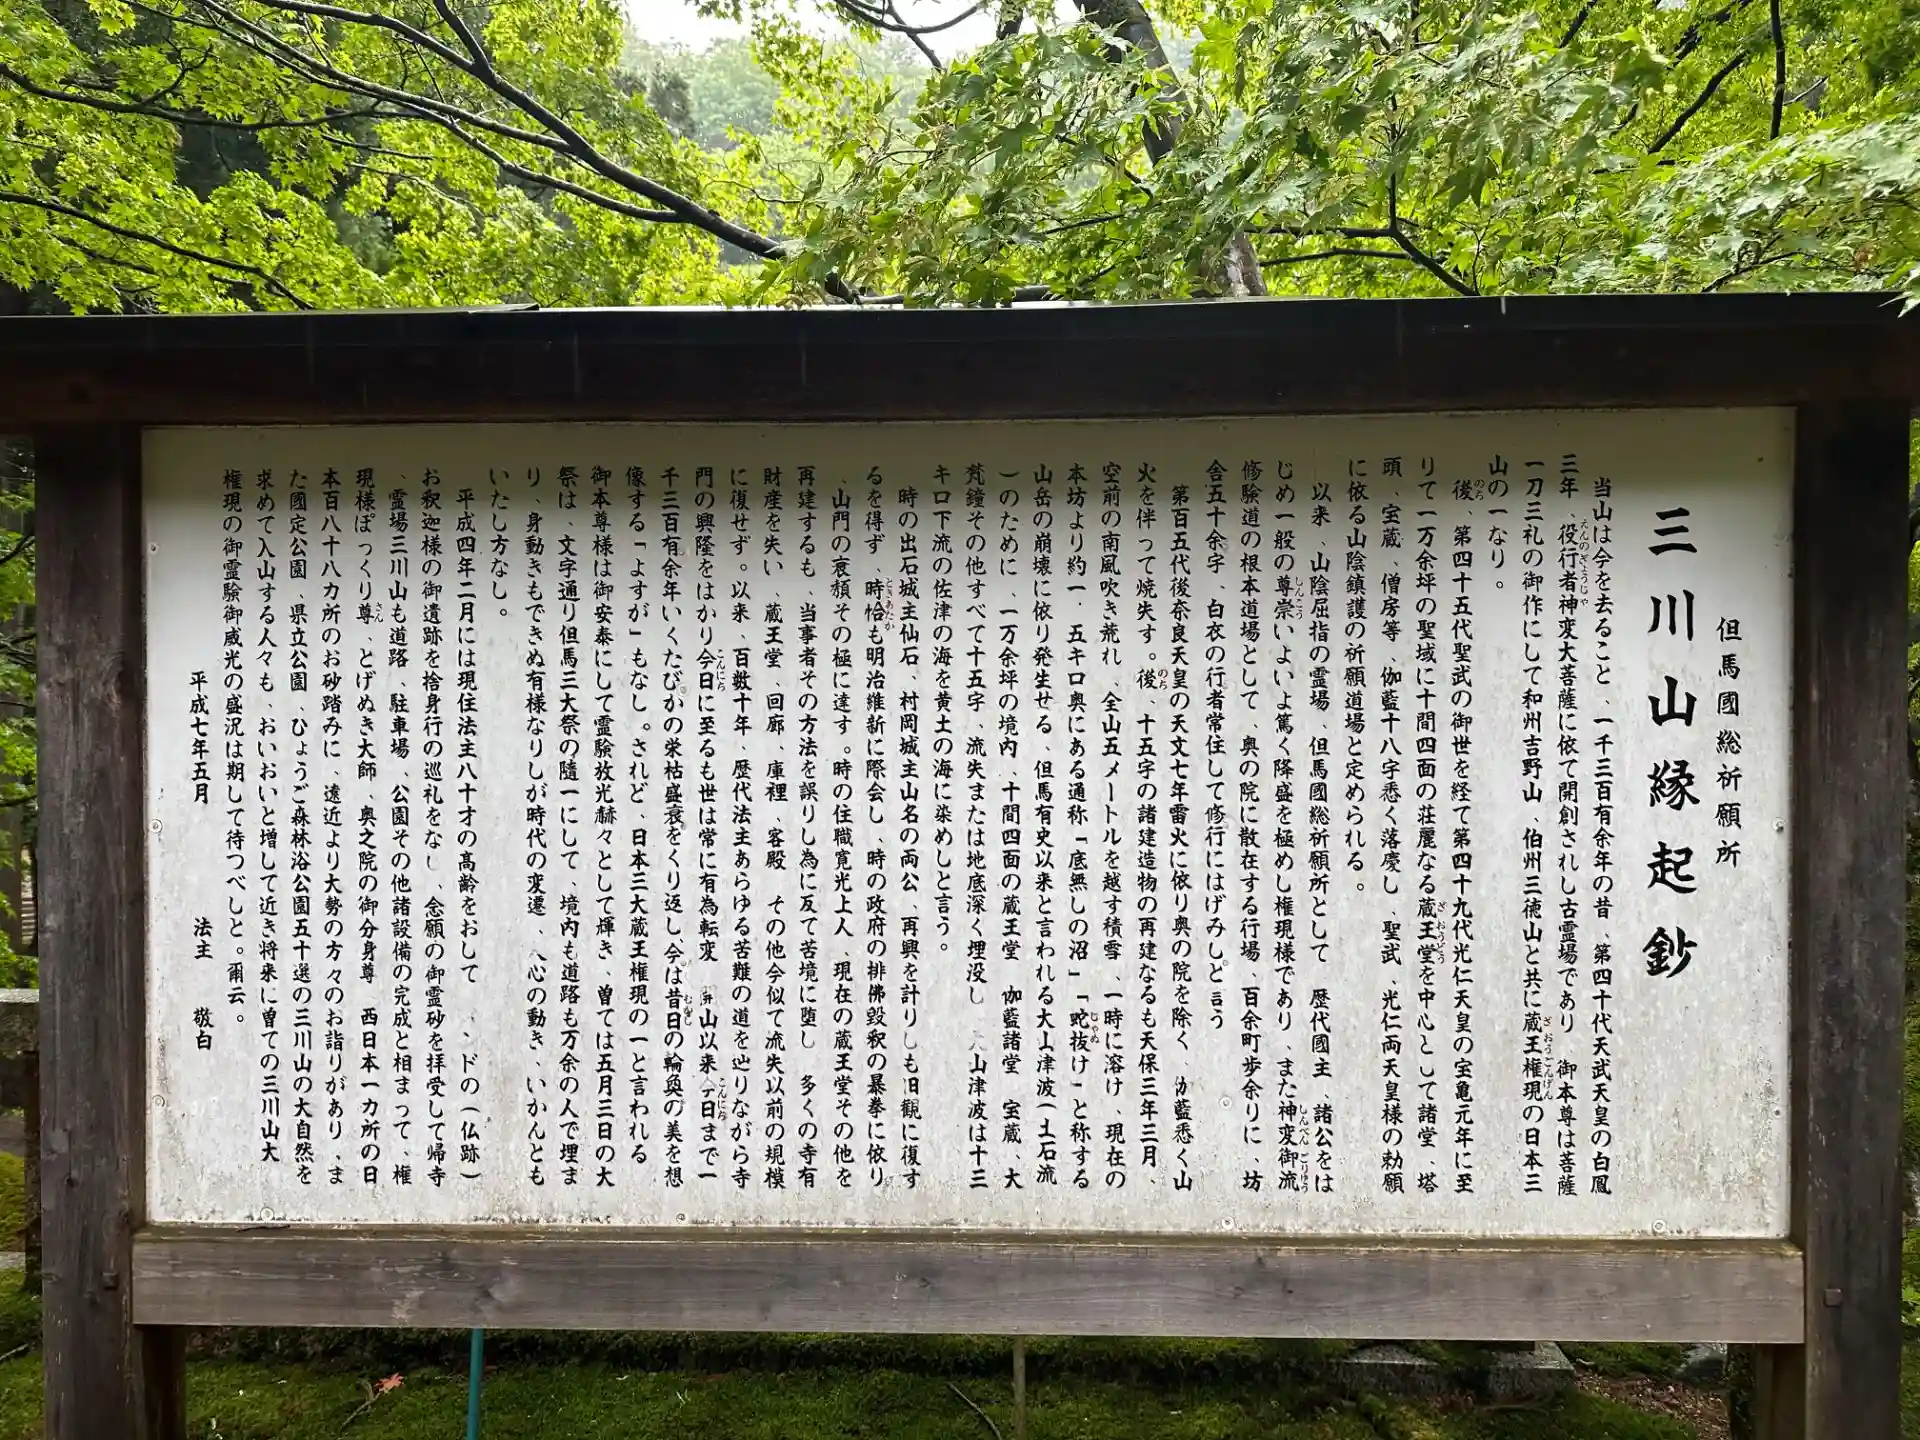 但馬國総祈願所
三川山縁起鈔
当山は今を去ること、一千三百有余年の昔、第四十代天武天皇の白鳳
三年、役行者神変大菩薩に依て開創されし古霊場であり 御本尊は菩薩
一刀三礼の御作にして和州吉野山、伯州三徳山と共に蔵王権現の日本三
山の一なり。
後、第四十五代聖武の御世を経て第四十九代光仁天皇の宝亀元年に至
りて一万余坪の聖域に十間四面の荘麗なる蔵王堂を中心として諸堂、塔
頭、宝蔵、僧房等、伽藍十八字悉く落慶し、聖武、光仁両天皇様の勅願
に依る山陰鎮護の祈願道場と定められる。
以来、山陰屈指の霊場、但馬國総祈願所として 歴代國主、諸公をは
じめ一般の尊崇いよいよ篤く降盛を極めし権現様であり、また神変御流
修験道の根本道場として、奥の院に散在する行場、百余町歩余りに、坊
舎五十余字、白衣の行者常住して修行にはげみしと言う
第百五代後奈良天皇の天文七年雷火に依り奥の院を除く、伽藍悉く山
火を伴って焼失す。後、十五字の諸建造物の再建なるも天保三年三月、
空前の南風吹き荒れ、全山五メートルを越す積雪、一時に溶け、現在の
本坊より約一．五キロ奥にある通称「底無しの沼」「蛇抜け」と称する
山岳の崩壊に依り発生せる、但馬有史以来と言われる大山津波(土石流
)のために、一万余坪の境内、十間四面の蔵王堂 伽藍諸堂 宝蔵、大
梵鐘その他すべて十五字、流失または地底深く埋没し 大山津波は十三
キロ下流の佐津の海を黄土の海に染めしと言う。
時の出石城主仙石、村岡城主山名の両公、再興を計りしも旧観に復す
るを得ず、時恰も明治維新に際会し、時の政府の排佛毀釈の暴挙に依り
、山門の衰頽その極に達す。時の住職寛光上人、現在の蔵王堂その他を
再建するも、当事者その方法を誤りし為に反て苦境に堕し 多くの寺有
財産を失い、蔵王堂、回廊、庫裡、客殿 その他今似て流失以前の規模
に復せず。以来、百数十年、歴代法主あらゆる苦難の道を辿りながら寺
門の興隆をはかり今日に至るも世は常に有為転変 開山以来今日まで一
千三百有余年いくたびかの栄枯盛衰をくり返し今は昔日の輪奐の美を想
像する「よすが」もなし。されど、日本三大蔵王権現の一と言われる
御本尊様は御安泰にして霊験放光赫々として輝き、曽ては五月三日の大
祭は、文字通り但馬三大祭の随一にして、境内も道路も万余の人で埋ま
り、身動きもできぬ有様なりしが時代の変遷、人心の動き、いかんとも
いたし方なし。
平成四年二月には現住法主八十才の高齢をおして ンドの(仏跡)
お釈迦様の御遺跡を捨身行の巡礼をなし、念願の御霊砂を拝受して帰寺
、霊場三川山も道路、駐車場、公園その他諸設備の完成と相まって、権
現様ぽっくり尊、とげぬき大師、奥之院の御分身尊 西日本一カ所の日
本百八十八カ所のお砂踏みに、遠近より大勢の方々のお詣りがあり、ま
た國定公園、県立公園、ひょうご森林浴公園五十選の三川山の大自然を
求めて入山する人々も、おいおいと増して近き将来に曽ての三川山大
権現の御霊験御威光の盛況は期して待つべしと。爾云。
平成七年五月 法主 敬白